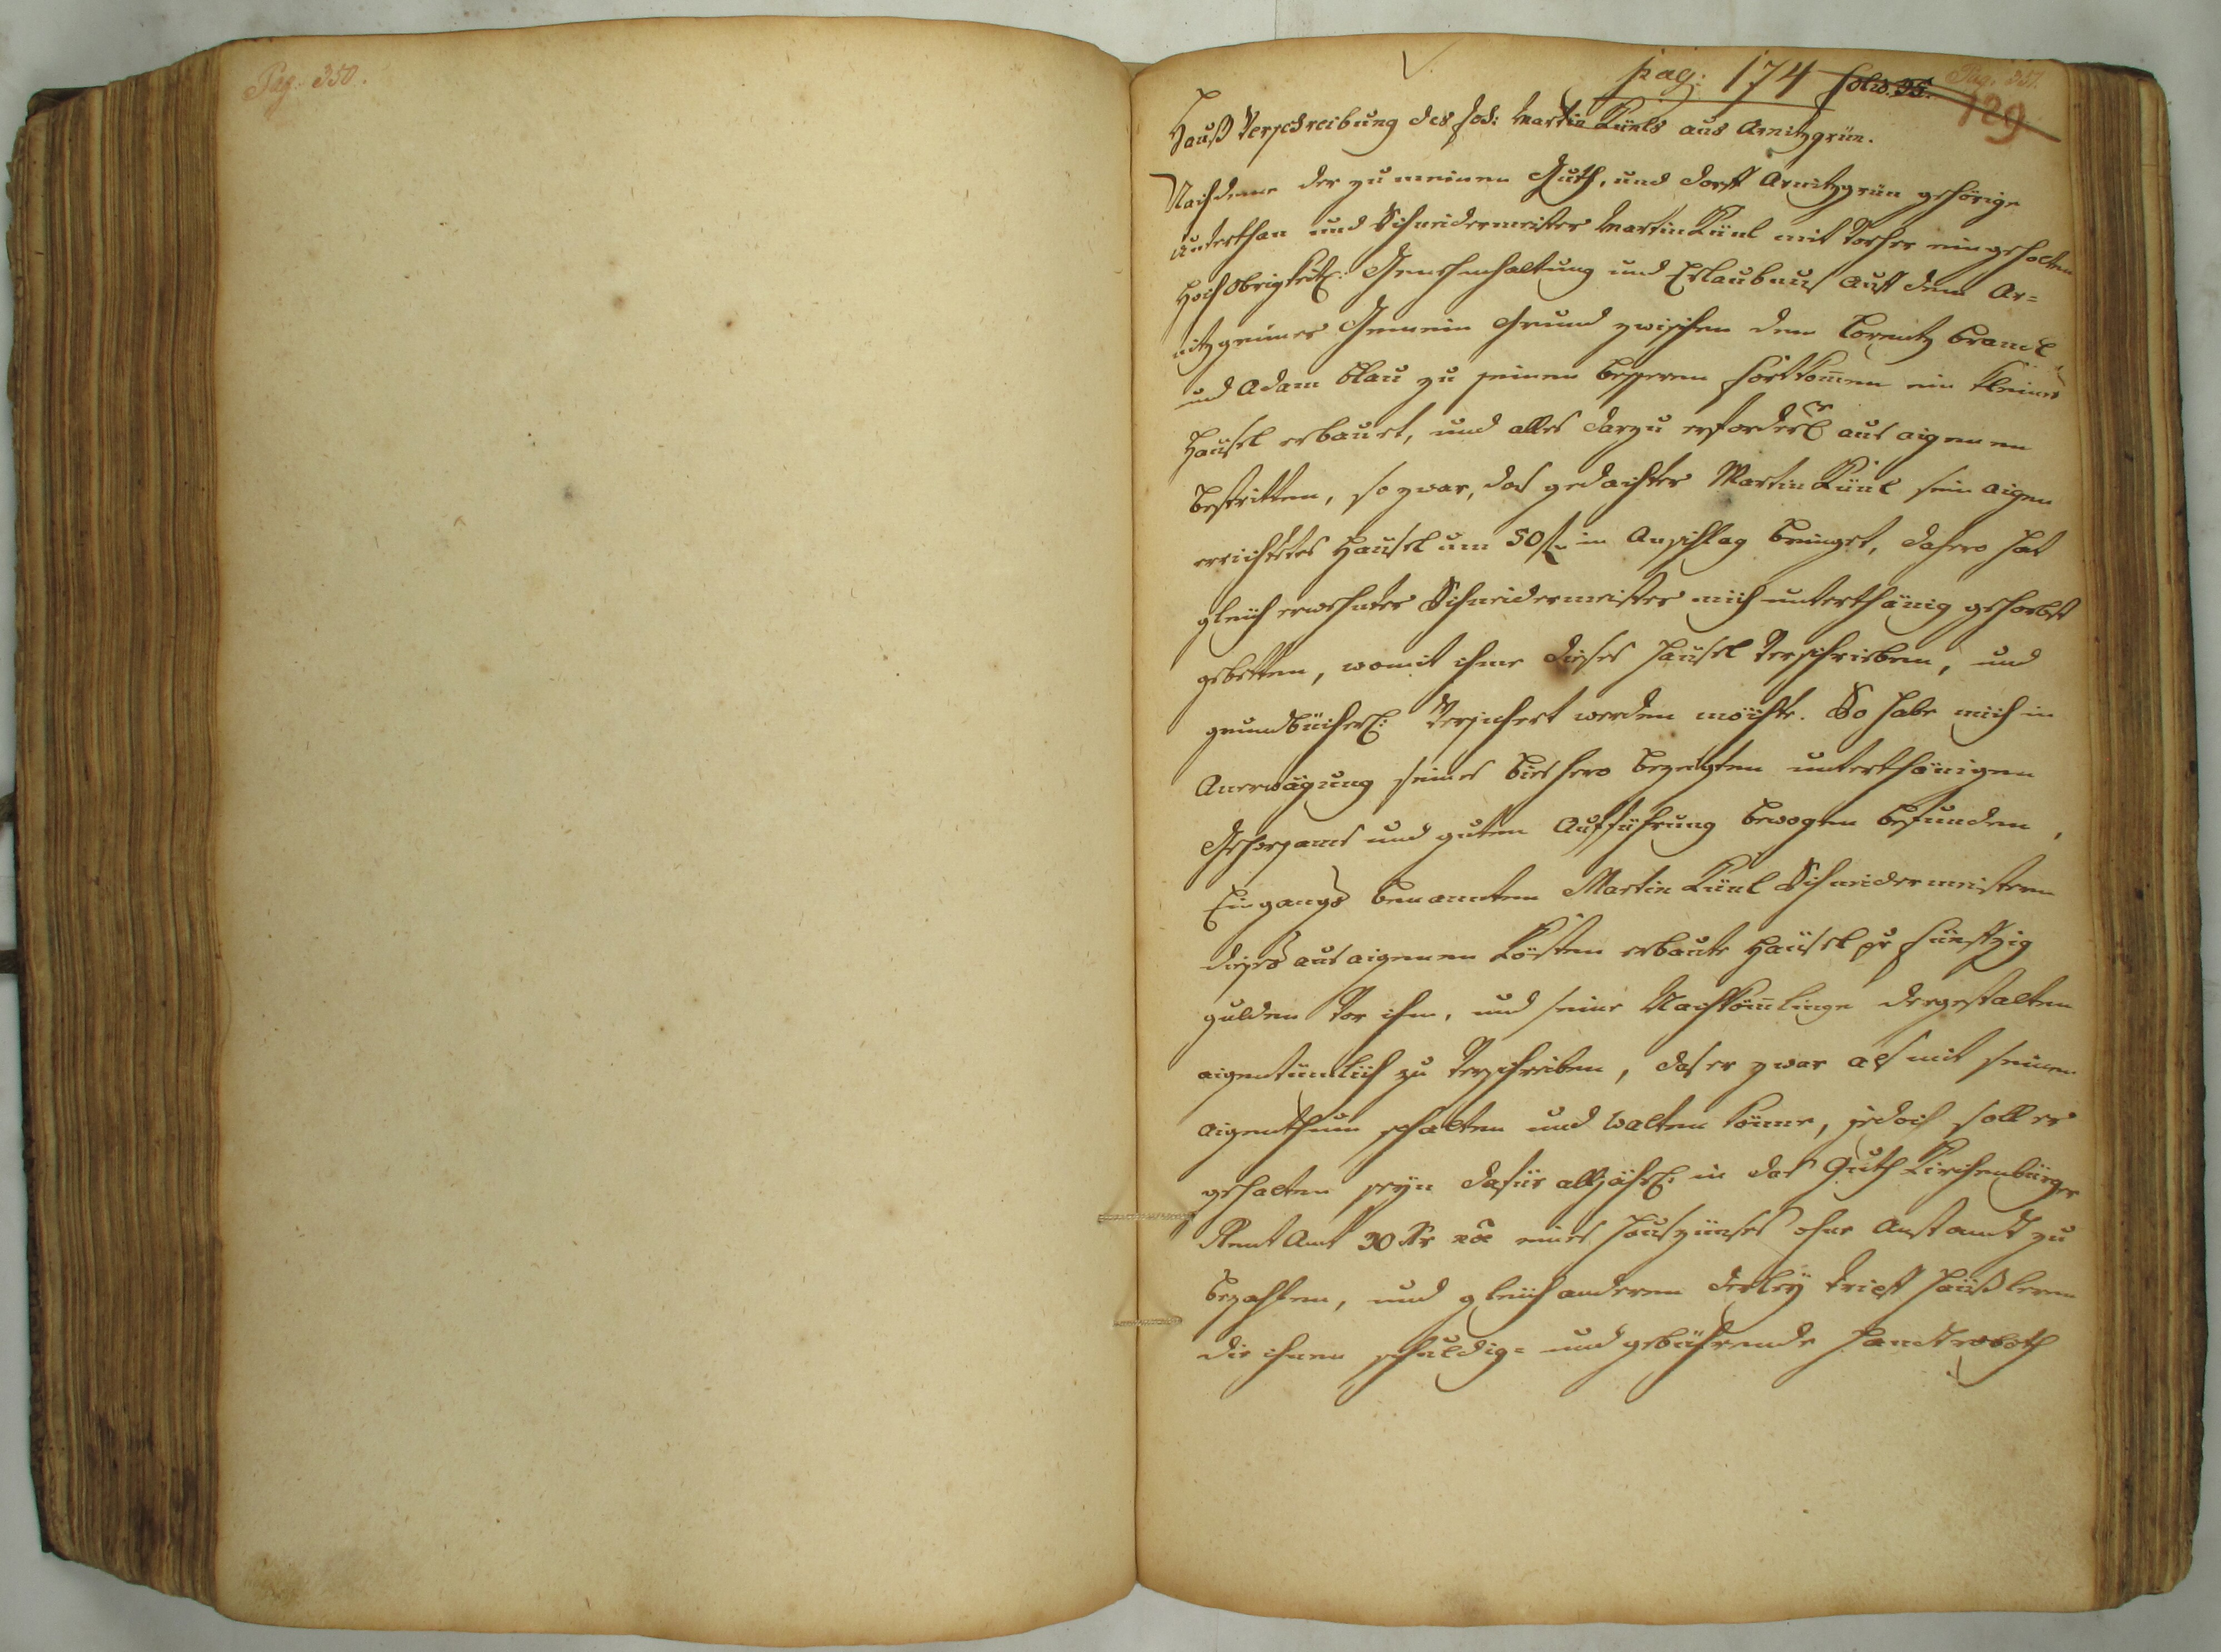 Pag. 350.
pag: 174 folio. 95. Pag. 351.
129
Hauß Verschreibung des Joh: Martin Künls aus Arnitzgrün.
Nachdeme der zu meinen Guth, und Dorff Arnitzgrün gehörige
unterthan und Schneidermeister Martin Künl mit vorher eingeholten
Hoch Obrigkeitl: Genehmhaltung und Erlaubnus auff dem Ar=
nitzgrüner Gemein Grund zwischen dem Lorentz Brandl
und Adam Blau zu seinen besseren fortkom̅en ein kleines
Häusel erbauet, und alles darzu erforderl aus aigenen
bestritten, so zwar, das gedachter Martin Künl sein aigen
errichtetes Häusel um 50 f. in Anschlag bringet, dahero hat
gleich erwehnter Schneidermeister mich unterthänig gehorbst
gebetten, womit ihme dieses Häusel verschrieben, und
grundbücherl: versichert werden möchte. So habe mich in
Anerwägung seines bishero bezeigten unterthänigen
Gehorsams und guten Aufführung bewogen befunden,
Eingangs benannten Martin Künl Schneidermeistern
dieses aus aigenen Kösten erbaute Häusel pr fünffzig
gulden vor ihm, und seine Nachköm̅linge dergestalten
aigentümlich zu verschreiben, das er zwar als mit seinen
aigenthum schalten und walten könne, jedoch soll er
gehalten seyn dafür alljährl: in das Guth Kirchenbürger
Rent Amt 30 Kr eines Hauszinses ohne Anstandt zu
bezahlen, und gleich anderen derley Trieft Häußlern
die ihnen schuldig= und gebührende Handt roboth